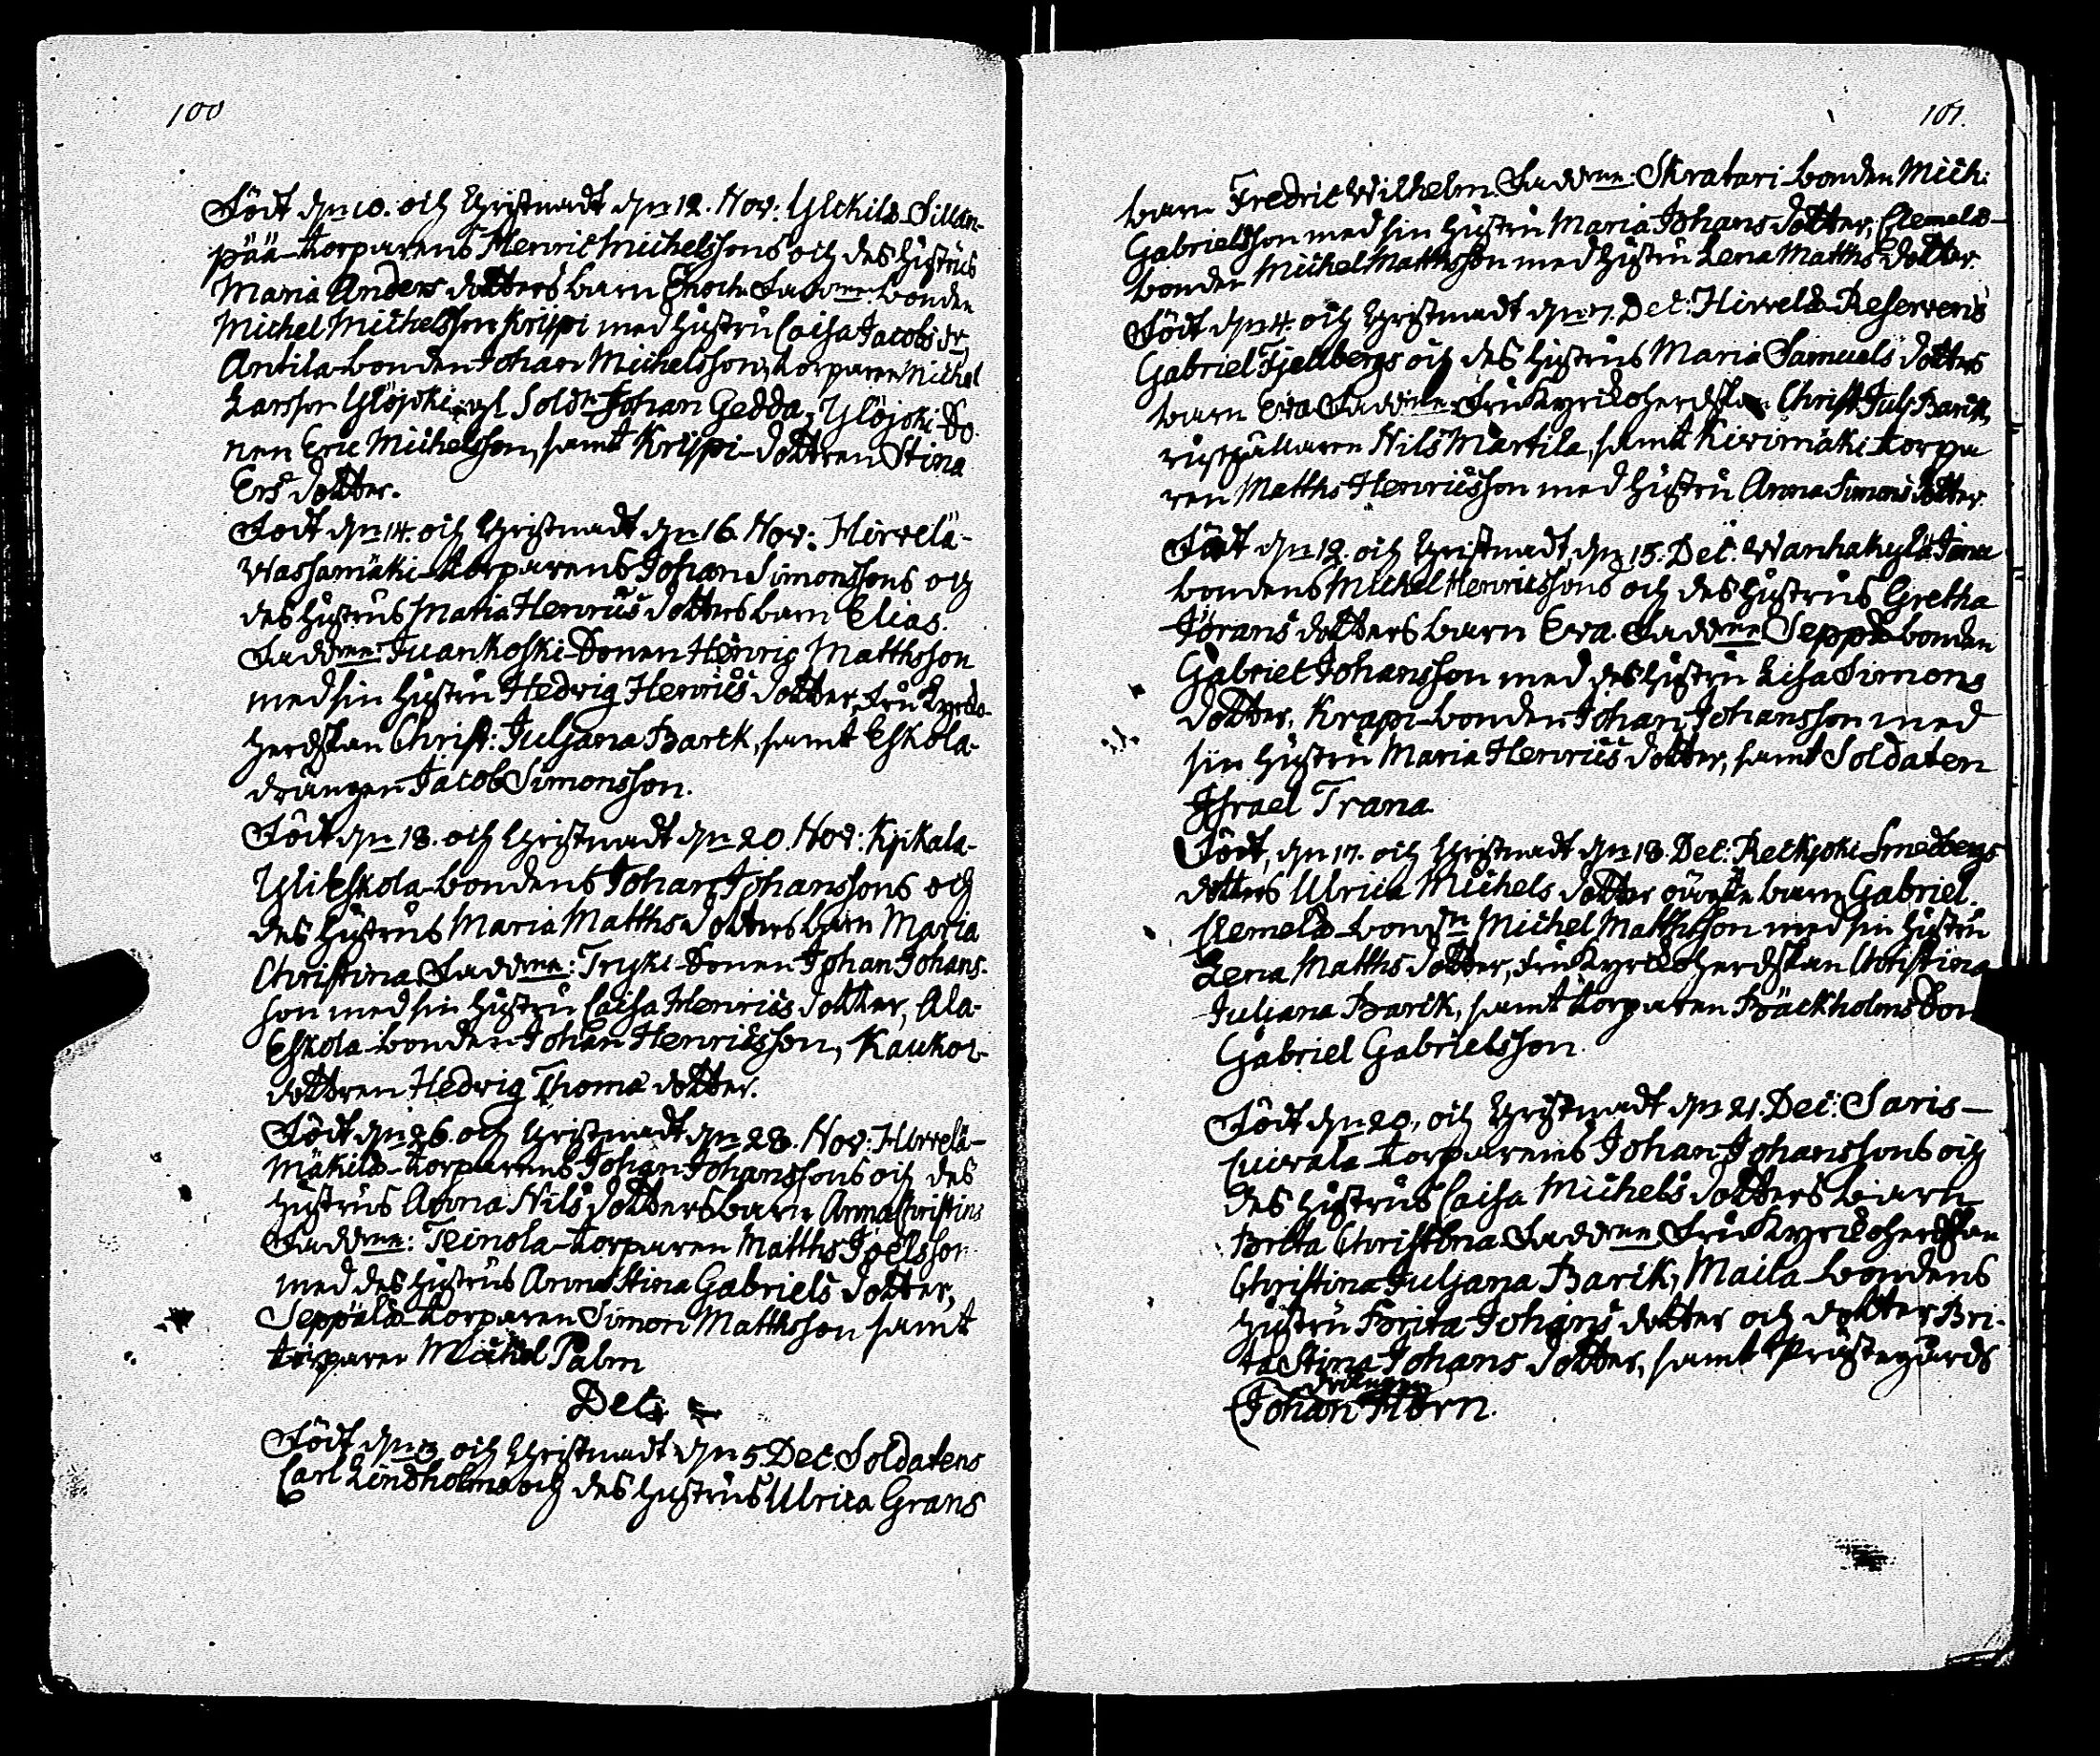 100
Födt dn 10. och Christnadt dn 12. Nov: Ylikilä-Sillan-
pää-torparens Henric Michelssons och des hustrus
Maria Anders dotters barn Enoch. Faddrne: bonden
Michel Michelsson Krippi med hustru Caisa Jacobs dr,
Antila-bonden Johan Michelsson, torparen Michel
Larsson Ylöjoki, Soldn Johan Gedda, Ylöjoki-So-
nen Eric Michelsson, samt Krippi-dottren Stina
Ers dotter.
Födt dn 14. och Christnadt dn 16. Nov: Hirvelä-
Wassamäki-torparens Johan Simonssons och
des hustrus Maria Henrics dotters barn Elias.
Faddrne: Juankoski-Sonen Henric Matthsson
med sin hustru Hedvig Henrics dotter, fru Kyrko-
herdskan Christ: Juljana Barck, samt Eskola-
drängen Jacob Simonsson.
Födt dn 18. och Christnadt dn 20. Nov: Kjikala-
Yli Eskola-bondens Johan Johanssons och
des hustrus Maria Matths dotters barn Maria
Christina. Faddrne: Tryki-Sonen Johan Johans-
son med sin hustru Caisa Henrics dotter, Ala-
Eskola-bonden Johan Henricsson, Kaukor-
dottren Hedvig Thomæ dotter.
Födt dn 26. och Christnadt dn 28. Nov: Hirvelä-
Mäkilä-torparens Johan Johanssons och des
hustrus Anna Nils dotters barn Anna Christina
Faddrne: Teinola-torparen Matths Joelsson
med des hustrus Anna Stina Gabriels dotter,
Seppälä-torparen Simon Matthsson samt
torparen Michel Palm
Dec:
Födt dn 3. och Christnadt dn 5. Dec. Soldatens
Carl Lindholms och des hustrus Ulrica Grans
101.
barn Fredric Wilhelm. Faddrne: Skratari-bonden Mich:
Gabrielsson med sin hustru Maria Johans dotter, Clemelä-
bonden Michel Matthsson med hustru Lena Matths dotter.
Födt dn 4. och Christnadt dn 7. Dec: Hirvelä-Reservens
Gabriel Fjellbergs och des hustrus Maria Samuels dotters
barn Eva. Faddrne: Fru Kyrkoherdskan Christ: Jul: Barck,
rusthållaren Nils Martila, samt Kivimäki-torpa
ren Matths Henricsson med hustru Anna Simons dotter.
Födt dn 12. och Christnadt dn 15. Dec: Wanhakylä
bondens Michel Henricssons och des hustrus Gretha
Jörans dotters barn Eva. Faddrne: Seppä-bonden
Gabriel Johansson med des hustru Lisa Simons
dotter, Krapi-bonden Johan Johansson med
sin hustru Maria Henrics dotter, samt Soldaten
Israel Trana.
Födt, dn 17. och Christnadt dn 18. Dec: Reckjoki Smedbergs
dotters Ulrica Michels dotter oäckta barn Gabriel.
Clemelä-bondn Michel Matthsson med sin hustru
Lena Matths dotter, fru Kyrkoherdskan Christina
Juliana Barck, samt torparen Bäckholms Son
Gabriel Gabrielsson.
Födt dn 20. och Christnadt dn 21. Dec: Saris-
torparens Johan Johanssons och
des hustrus Caisa Michels dotters barn
Britta Christina. Faddrne Fru Kyrkoherdskan
Christina Juljana Barck, Maila-bondens
hustru Brita Johans dotter och dotter Bri-
ta Stina Johans dotter, samt Prästegårds
drängen
Johan Horn.